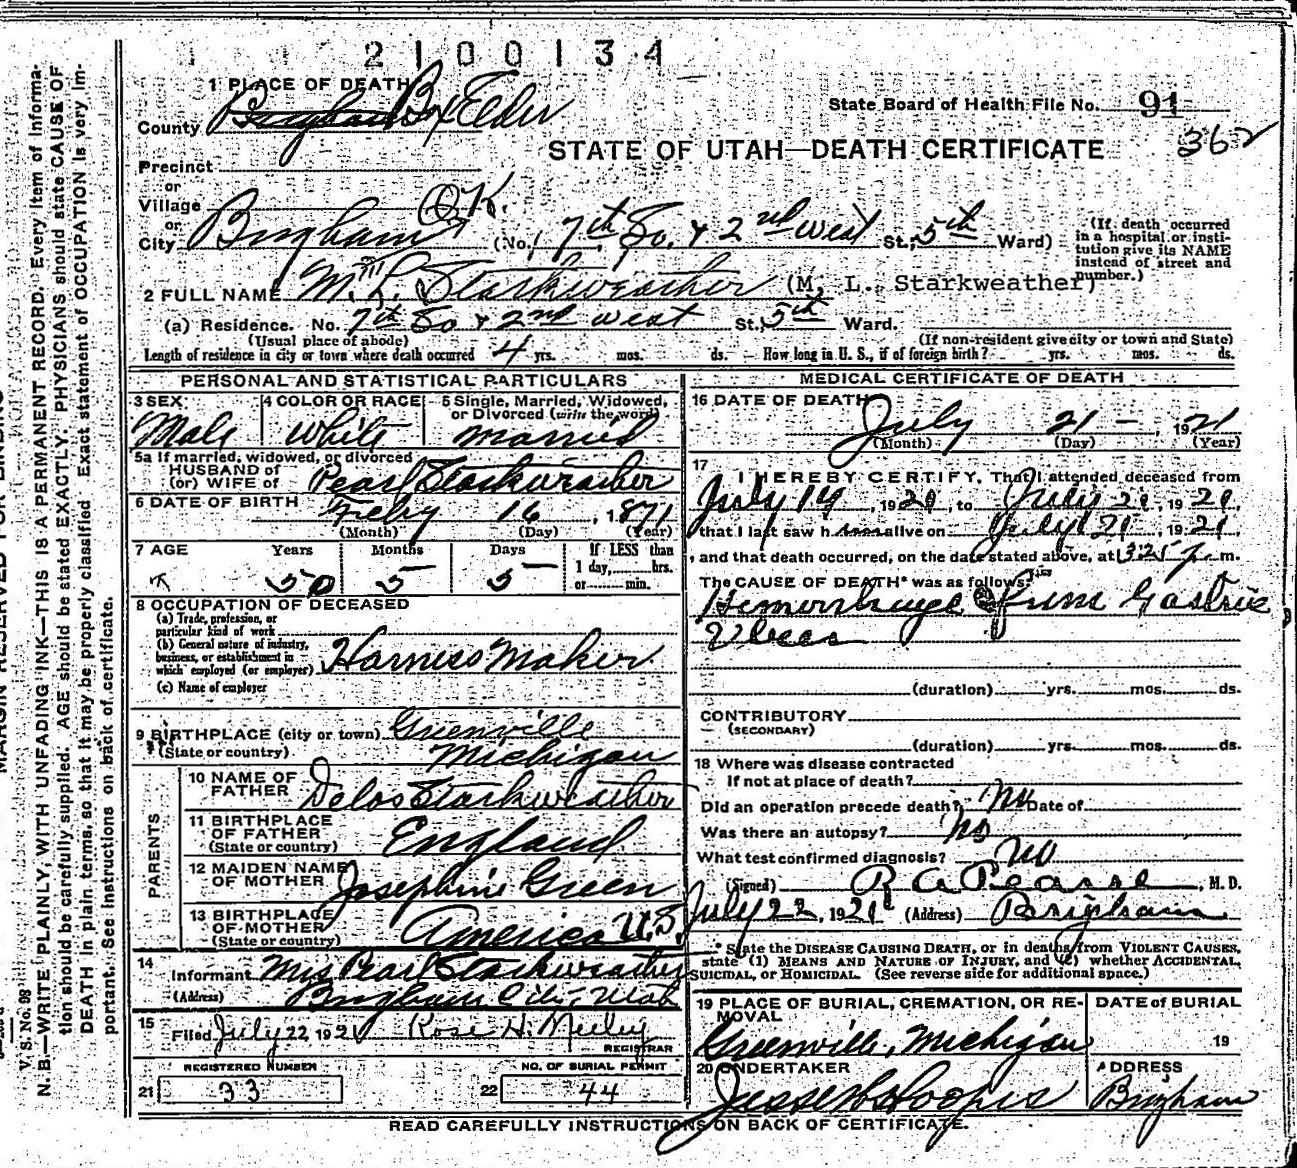 2100134
1 PLACE OF DEATH
County Brigham Box Elder
State Board of Health File No. 91
362
STATE OF UTAH—DEATH CERTIFICATE
Precinct
or
Village O.K.
or
City Brigham (No. 7th So. & 2nd west St.; 5th Ward)
(If death occurred in a hospital or institution give its NAME instead of street and number.)
2 FULL NAME M. L. Starkweather (M. L. Starkweather)
(a) Residence. No. 7th So & 2nd west St., 5th Ward.
(Usual place of abode) (If non-resident give city or town and State)
Length of residence in city or town where death occurred 4 yrs. mos. ds. How long in U. S., if of foreign birth? yrs. mos. ds.
PERSONAL AND STATISTICAL PARTICULARS
3 SEX Male
4 COLOR OR RACE White
5 Single, Married, Widowed, or Divorced (write the word) married
5a If married, widowed, or divorced
HUSBAND of
(or) WIFE of Pearl Starkweather
6 DATE OF BIRTH Feby 16, 1871
(Month) (Day) (Year)
7 AGE Years 50 Months 5 Days 5
If LESS than 1 day, hrs. or min.
8 OCCUPATION OF DECEASED
(a) Trade, profession, or particular kind of work
(b) General nature of industry, business, or establishment in which employed (or employer) Harness Maker
(c) Name of employer
9 BIRTHPLACE (city or town) Greenville
(State or country) Michigan
PARENTS
10 NAME OF FATHER Delos Starkweather
11 BIRTHPLACE OF FATHER (State or country) England
12 MAIDEN NAME OF MOTHER Josephine Green
13 BIRTHPLACE OF MOTHER (State or country) America U.S.
14 Informant Mrs Pearl Starkweather
(Address) Brigham City, Utah
15 Filed July 22, 1921 Rose H. Neeley
REGISTRAR
REGISTERED NUMBER
21 33
NO. OF BURIAL PERMIT
22 44
MEDICAL CERTIFICATE OF DEATH
16 DATE OF DEATH July 21 - , 1921
(Month) (Day) (Year)
17 I HEREBY CERTIFY, That I attended deceased from
July 14, 1921, to July 21, 1921,
that I last saw him alive on July 21, 1921,
and that death occurred, on the date stated above, at 1325 p. m.
The CAUSE OF DEATH* was as follows:
Hemorrhage from Gastric
Ulcer
(duration) yrs. mos. ds.
CONTRIBUTORY
(SECONDARY)
(duration) yrs. mos. ds.
18 Where was disease contracted
If not at place of death?
Did an operation precede death? no Date of
Was there an autopsy? no
What test confirmed diagnosis? no
(Signed) R A Pearse, M. D.
July 22, 1921 (Address) Brigham
* State the DISEASE CAUSING DEATH, or in deaths from VIOLENT CAUSES,
state (1) MEANS AND NATURE OF INJURY, and (2) whether ACCIDENTAL,
SUICIDAL, or HOMICIDAL. (See reverse side for additional space.)
19 PLACE OF BURIAL, CREMATION, OR REMOVAL Greenville, Michigan
DATE of BURIAL 19
20 UNDERTAKER
ADDRESS Brigham
READ CAREFULLY INSTRUCTIONS ON BACK OF CERTIFICATE.
V. S. No. 98
N. B.—WRITE PLAINLY, WITH UNFADING INK—THIS IS A PERMANENT RECORD. Every item of informa-
tion should be carefully supplied. AGE should be stated EXACTLY. PHYSICIANS should state CAUSE OF
DEATH in plain terms, so that it may be properly classified. Exact statement of OCCUPATION is very im-
portant. See instructions on back of certificate.